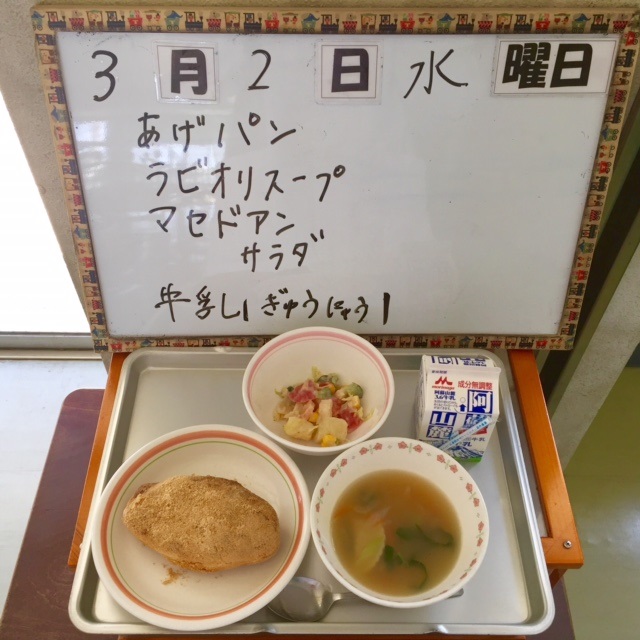 3月2日 水曜日
あげパン
ラビオリスープ
マセドアン
サラダ
牛乳 ぎゅうにゅう
成分無調整